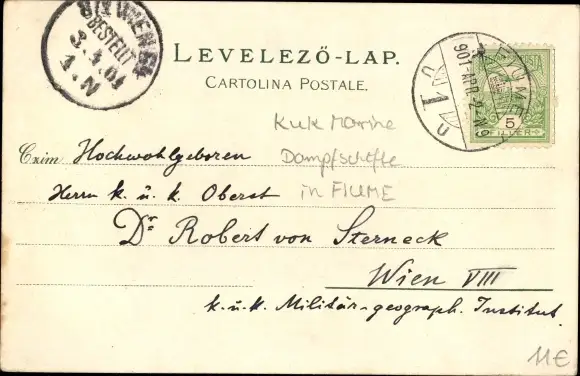 WIEN
BESTELLT
3.4.01
1.N
LEVELEZŐ-LAP.
CARTOLINA POSTALE.
FIUME
901 APR. 2
5
FILLÉR
KuK Marine
Dampfschiffe
in FIUME
Czím Hochwohlgeboren
Herrn k. u. k. Oberst
Dr. Robert von Sterneck
Wien VIII
k.u.k. Militär-geograph. Institut.
11€